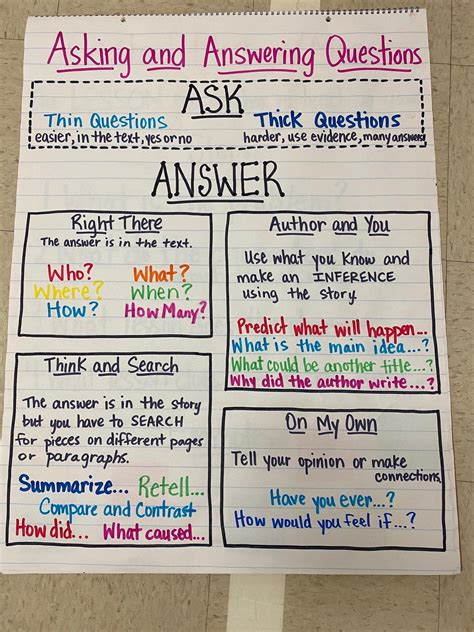 Asking and Answering Questions
ASK
Thin Questions
easier, in the text, yes or no
Thick Questions
harder, use evidence, many answers
ANSWER
Right There
The answer is in the text.
Who? What?
Where? When?
How? How Many?
Author and You
Use what you Know and
make an INFERENCE
using the story.
Predict what will happen...
What is the main idea...?
What could be another title...?
Why did the author write...?
Think and Search
The answer is in the story
but you have to SEARCH
for pieces on different pages
or paragraphs.
Summarize... Retell...
Compare and Contrast
How did... What caused...
On My Own
Tell your opinion or make
connections.
Have you ever...?
How would you feel if...?